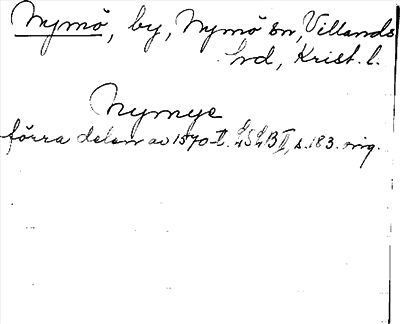 Nymö, by, Nymö sn, Villands
hd, Krist. l.
Nymye
förra delen av 1570-t. LSLB II, s. 183. orig.